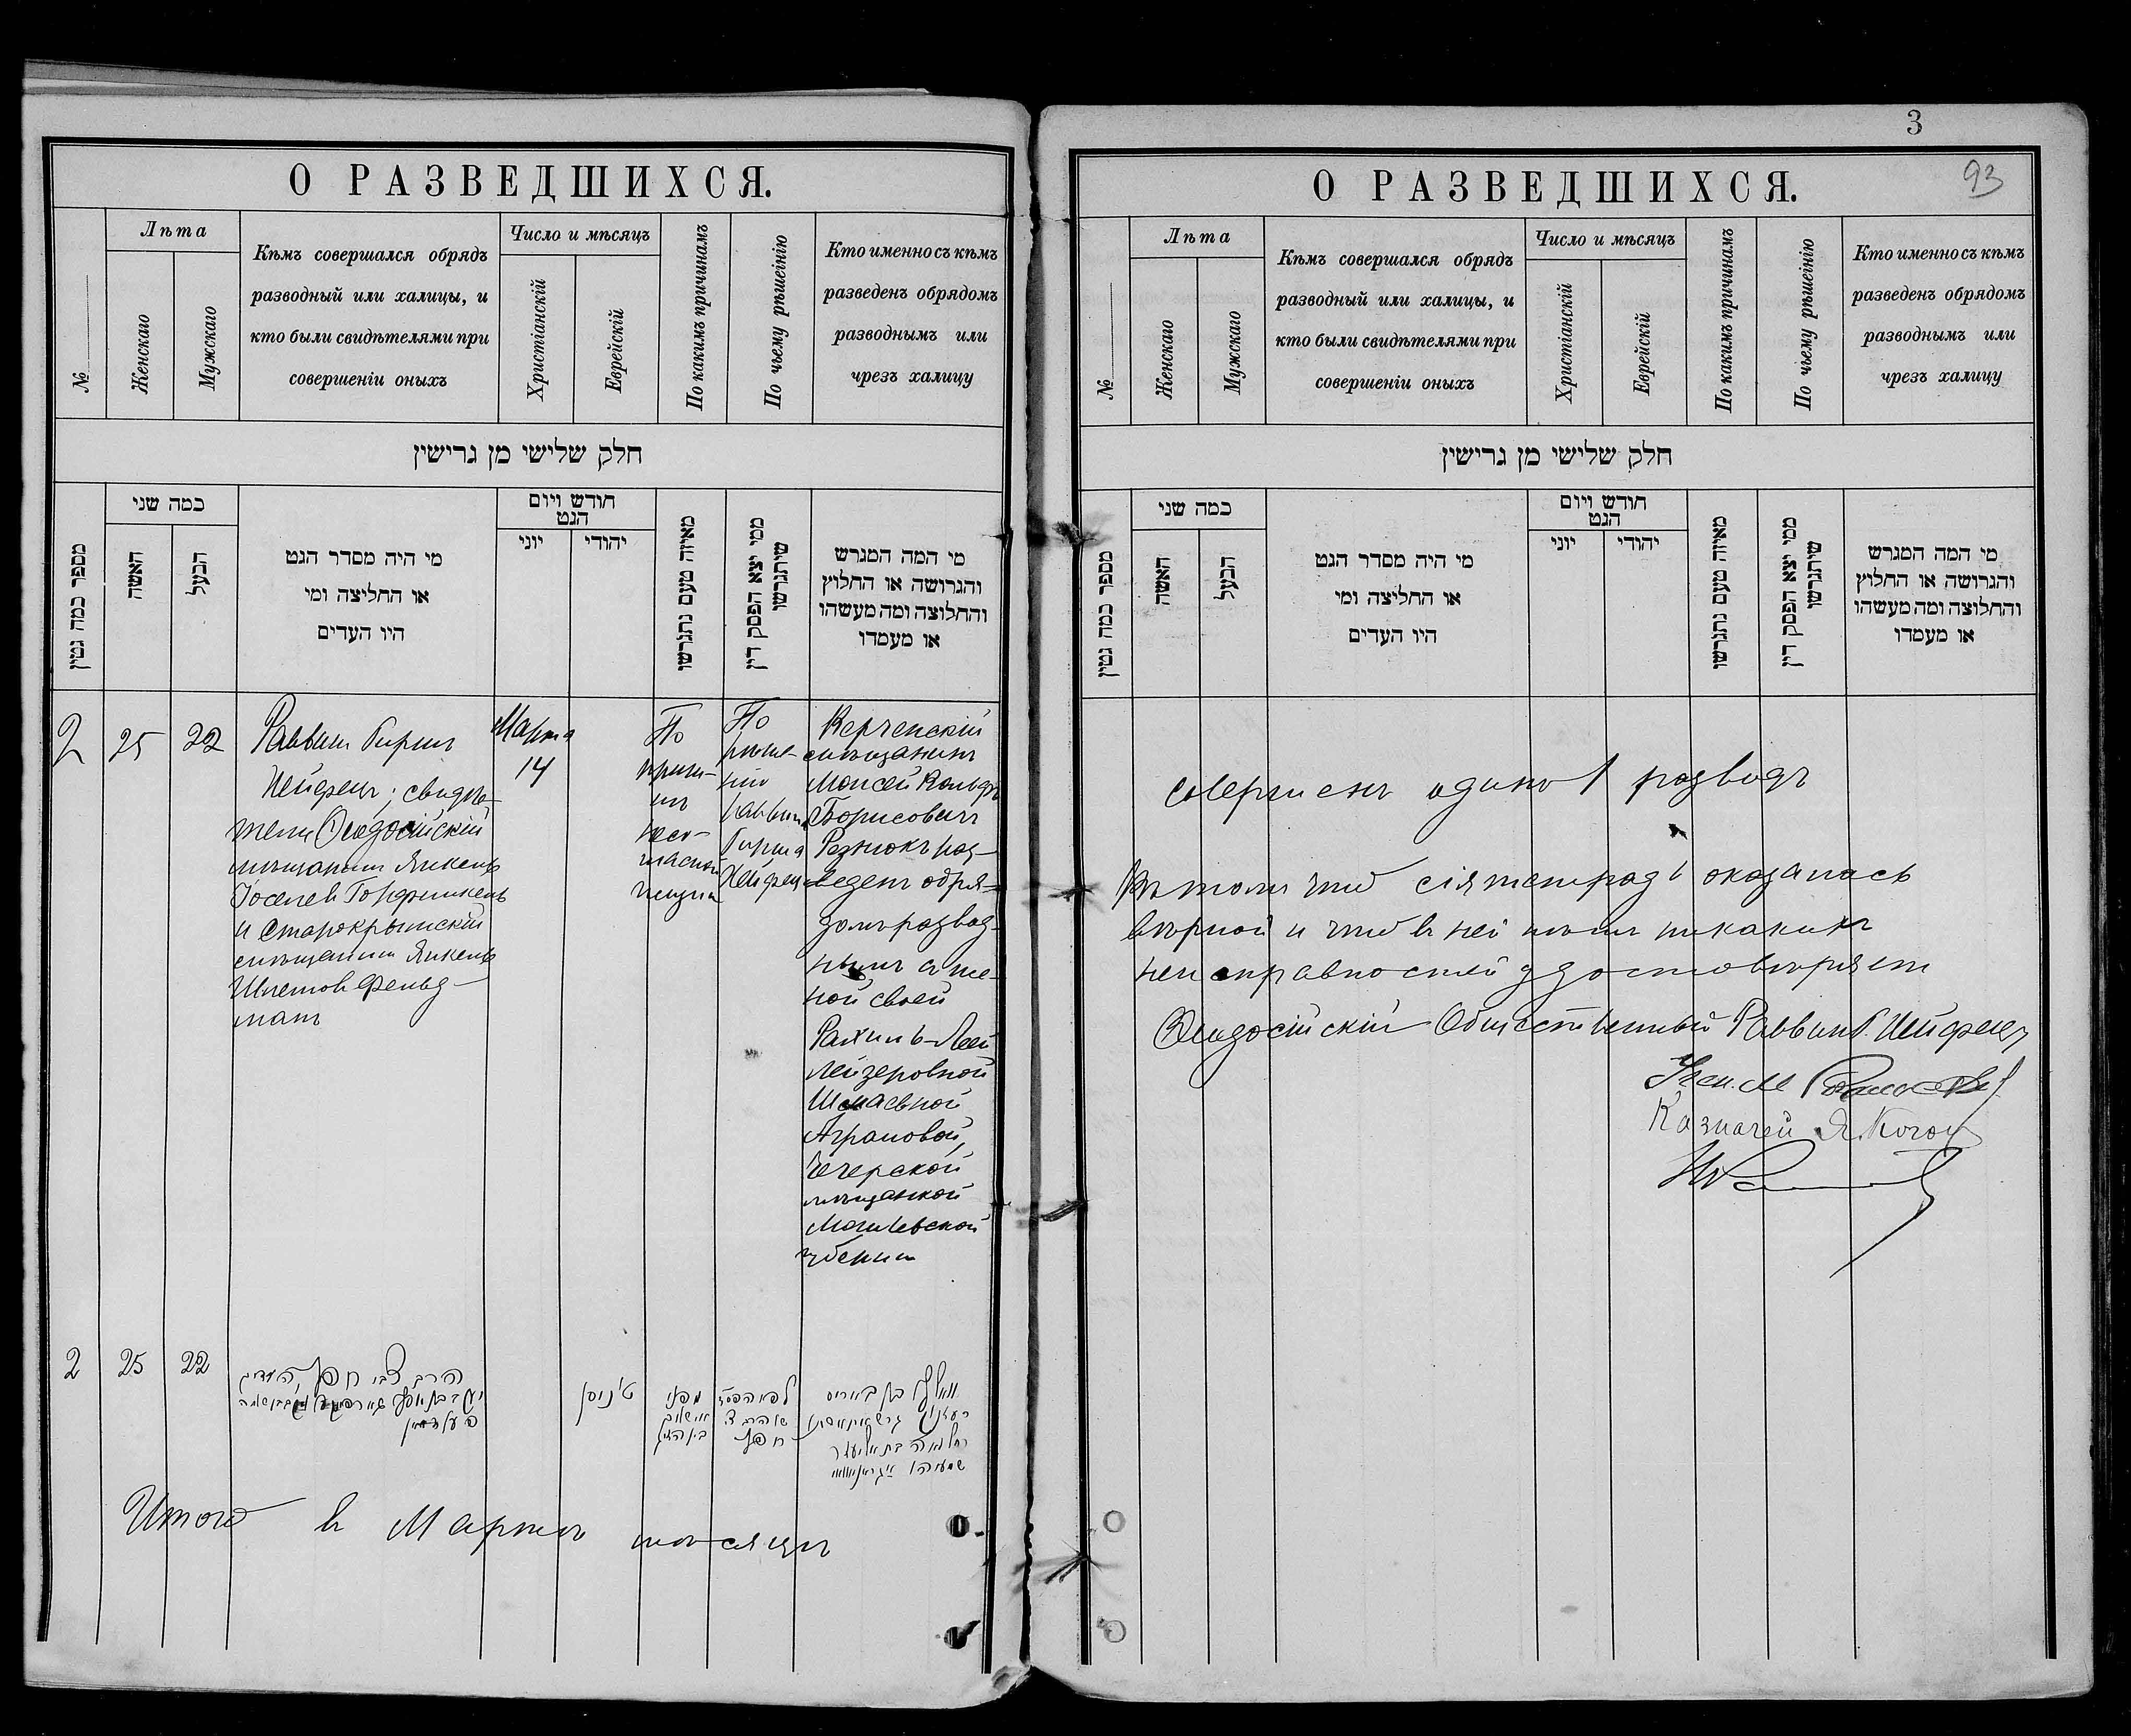 О РАЗВЕДШИХСЯ.
№
Лѣта
Женскаго
Мужскаго
Кѣмъ совершался обрядъ
разводный или халицы, и
кто были свидѣтелями при
совершеніи оныхъ
Число и мѣсяцъ
Христіанскій
Еврейскій
По какимъ причинамъ
По чьему рѣшеінію
Кто именно съ кѣмъ
разведенъ обрядомъ
разводнымъ или
чрезъ халицу
חלק שלישי מן גרישין
מספר כמה גטין
כמה שני
האשה
הבעל
מי היה מסדר הגט
או החליצה ומי
היו העדים
חודש ויום
הגט
יוני
יהודי
מאיזה טעם נתגרשו
ממי יצא הפסק דין
שיתגרשו
מי המה המגרש
והגרושה או החלוץ
והחלוצה ומה מעשהו
או מעמדו
2
25
22
Раввин Гирш
Хейфец; свидѣ-
тели Ѳеодосійскій
мѣщанин Янкель
Іоселев Гольдфинкель
и Старокрымскій
мѣщанин Янкель
Шлемов Фельд-
ман
Марта
14
По
причи-
нѣ
несо-
гласной
жизни
По
рѣше-
нію
раввина
Гирша
Хейфеца
Керченскій
мѣщанинъ
Моисей Вольфъ
Борисович
Резнюкъ раз-
веден обря-
домъ развод-
нымъ с же-
ной своей
Рахиль-Леей
Лейзеровной
Шмаевной
Аграновой,
Чечерской
мѣщанкой
Могилевской
губерніи
2
25
22
הרב צבי חפץ, העדים
ט' ניסן
מפני
אי שלום
לפי הפסק
של הרב צ
חפץ
וואלף בן באריס
רחל לאה בת אליעזר
Итого в Мартѣ мѣсяцѣ
3
93
О РАЗВЕДШИХСЯ.
№
Лѣта
Женскаго
Мужскаго
Кѣмъ совершался обрядъ
разводный или халицы, и
кто были свидѣтелями при
совершеніи оныхъ
Число и мѣсяцъ
Христіанскій
Еврейскій
По какимъ причинамъ
По чьему рѣшеінію
Кто именно съ кѣмъ
разведенъ обрядомъ
разводнымъ или
чрезъ халицу
חלק שלישי מן גרישין
מספר כמה גטין
כמה שני
האשה
הבעל
מי היה מסדר הגט
או החליצה ומי
היו העדים
חודש ויום
הגט
יוני
יהודי
מאיזה טעם נתגרשו
ממי יצא הפסק דין
שיתגרשו
מי המה המגרש
והגרושה או החלוץ
והחלוצה ומה מעשהו
או מעמדו
совершенъ одинъ 1 разводъ
Въ томъ что сія тетрадь оказалась
вѣрной и что в ней нѣт никаких
неисправностей удостовѣряет
Ѳеодосійскій Общественный Раввин Г. Хейфец
Казначей Я. Коган